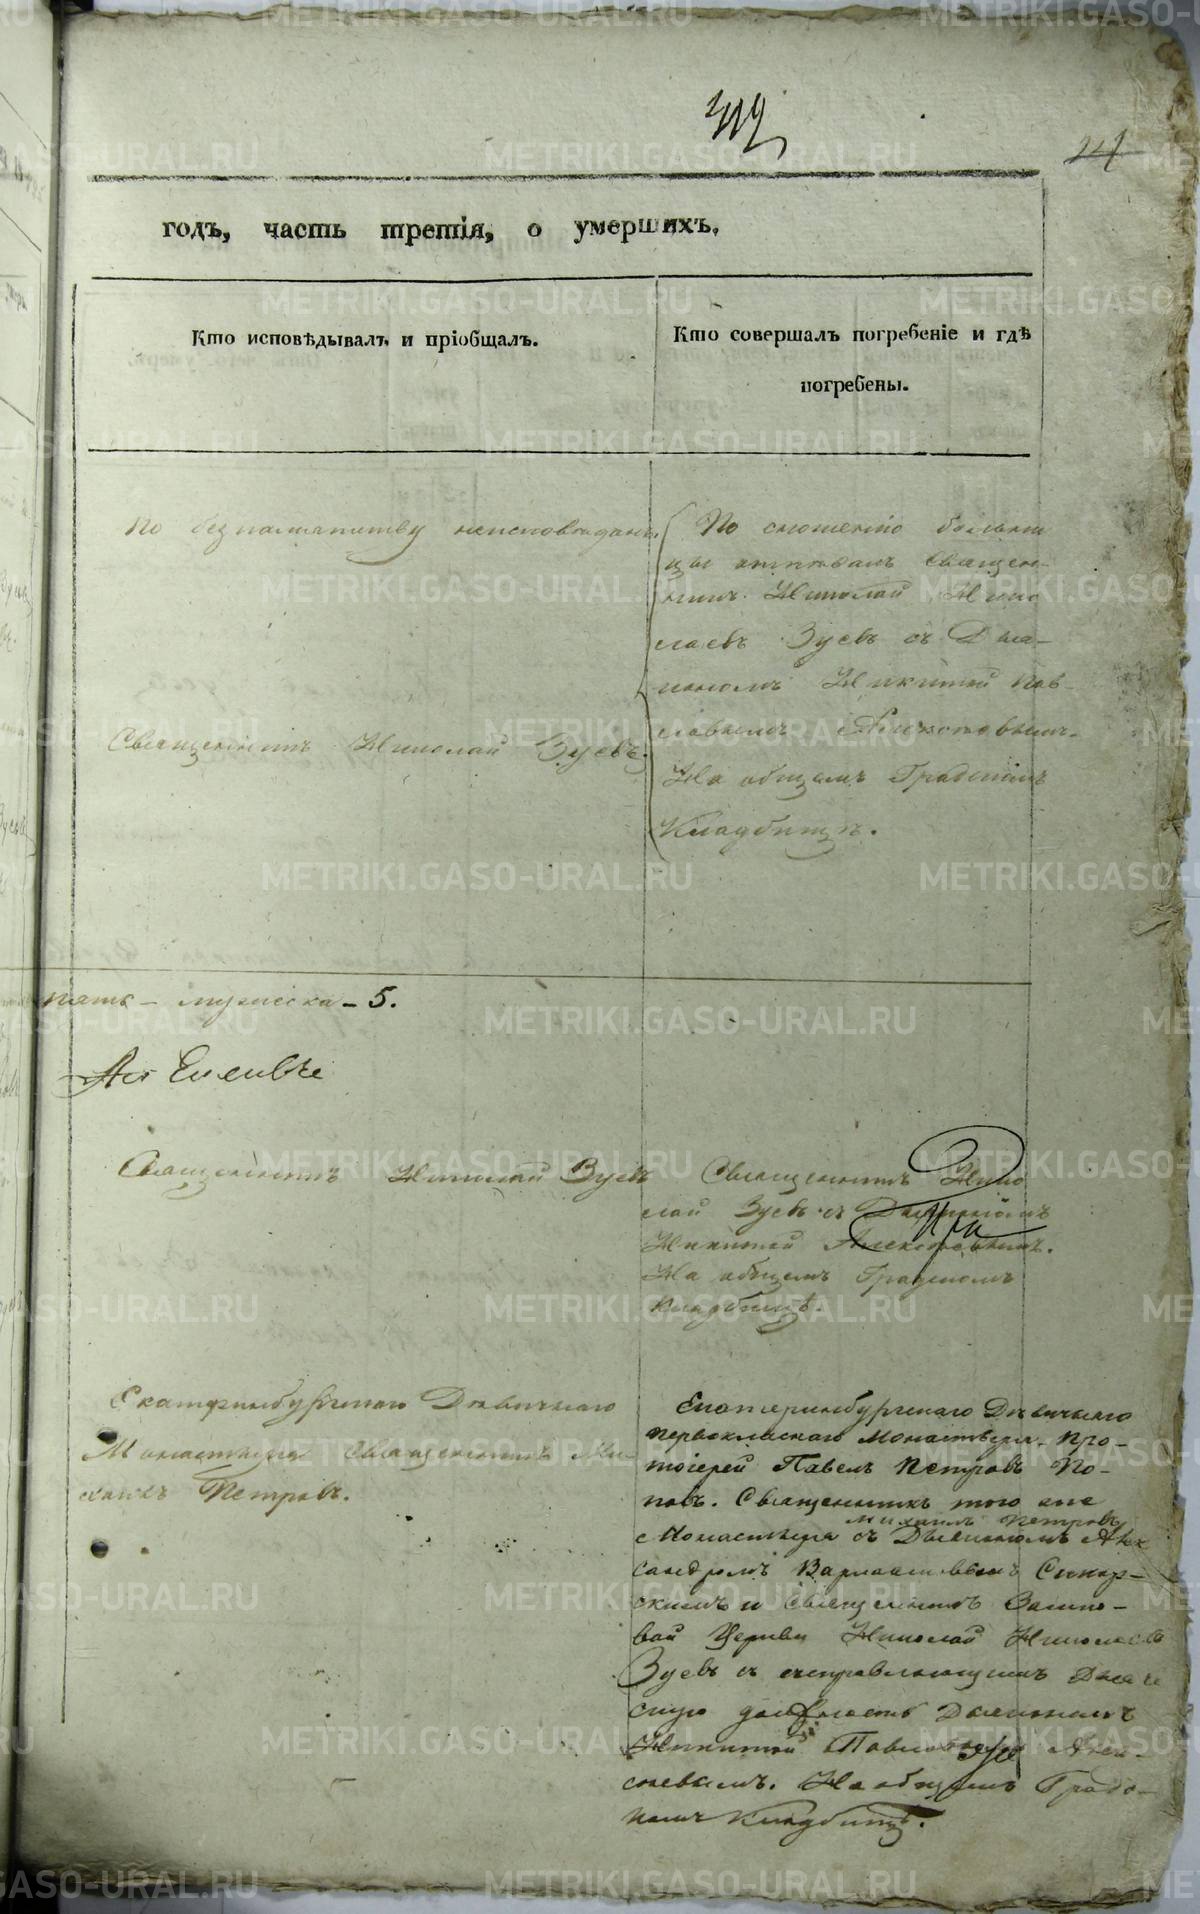 годъ, часть третія, о умершихъ.
Кто исповѣдывалъ и пріобщалъ.
Кто совершалъ погребеніе и гдѣ
погребены.
По безпамятству неисповѣданъ.
Священникъ Николай Зуевъ.
По сношенію больни
цы отпѣвалъ Священ-
никъ Николай Нико
лаевъ Зуевъ съ Діа-
кономъ Никитой Пав-
ловымъ
На общемъ Градскомъ
Кладбищѣ.
пять – мужеска – 5.
Священникъ Николай Зуевъ
Священникъ Нико
лай Зуевъ съ Діакономъ
Никитой Алексѣевымъ.
На общемъ Градскомъ
Кладбищѣ.
Екатеринбургскаго Дѣвичьяго
Монастыря Священникъ Ми-
хаилъ Петровъ.
Екатеринбургскаго Дѣвичьяго
первокласнаго Монастыря Про-
тоіерей Павелъ Петровъ По-
повъ. Священникъ того же
Михаилъ Петровъ
Монастыря съ Діакономъ Алек
сандромъ
скимъ и Священникъ
вой Церкви Николай Николаевъ
Зуевъ съ исправляющимъ Дьяче
скую должность Діакономъ
Никитой Павловымъ Алек-
сѣевымъ. На общемъ Градс-
комъ Кладбищѣ.
METRIKI.GASO-URAL.RU